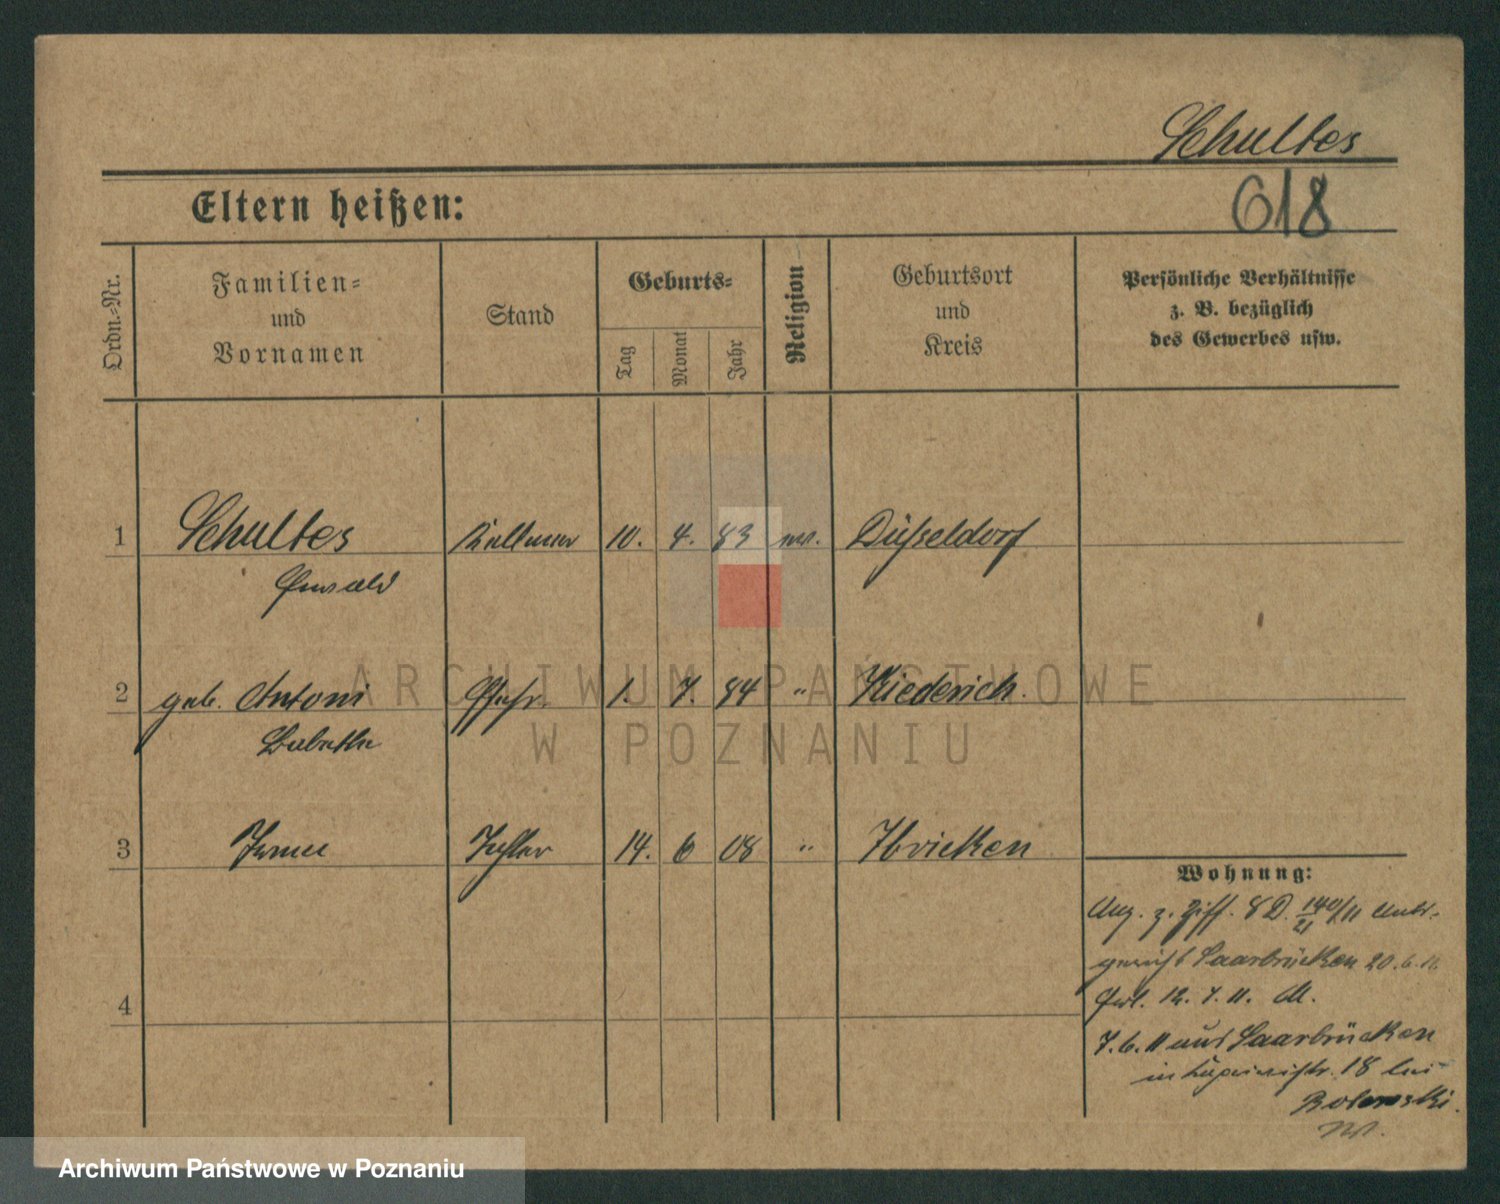 Schultes
618
Eltern heißen:
Ordn.-Nr.
Familien-
und
Vornamen
Stand
Geburts-
Tag
Monat
Jahr
Religion
Geburtsort
und
Kreis
Persönliche Verhältnisse
z. B. bezüglich
des Gewerbes usw.
1 Schultes Kellner 10. 4. 83 Düsseldorf
2 geb. Antoni Ehefr. 1. 7. 84 " Kiederich.
Babette
3 Tochter 14. 6 08 "
4
Wohnung:
Anz. z. Ziff. 8 D. 140/21/11 Amts-
gericht Saarbrücken 20.6.11
Erl. 12. 7. 11. M.
7.6.11 aus Saarbrücken
18 bei
ARCHIWUM PAŃSTWOWE
W POZNANIU
Archiwum Państwowe w Poznaniu